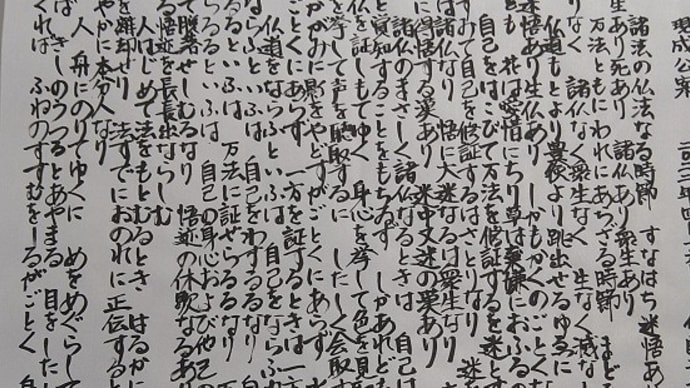 現成公案
諸法の仏法なる時節 すなはち迷悟あ
生あり死あり 諸仏あり衆生あり
万法ともにわれにあらざる時節 まど
りなく 諸仏なく衆生なく 生なく滅な
仏道もとより豊倹より跳出せるゆゑに
迷悟あり生仏あり しかもかくのごとくな
も 花は愛惜にちり草は棄嫌におふる
自己をはこびて万法を修証するを迷とす
て自己を修証するはさとりなり 迷を
は諸仏なり 悟に大迷なるは衆生なり
に得悟する漢あり 迷中又迷の漢あり
諸仏のまさしく諸仏なるときは 自己は
と覚知することをもちゐず しかあれど
仏を証しもてゆく 身心を挙して色を見
を挙して声を聴取するに したしく会取す
かがみに影をやどすがごとくにあらず
ごとくにあらず 一方を証するときは一方
仏道をならふといふは 自己をならふ
ならふといふは 自己をわするるなり 自
るるといふは 万法に証せらるるなり 万
らるるといふは 自己の身心および他己の
て脱落せしむるなり 悟迹の休歇なるあり
る悟迹を長長出ならしむ
人はじめて法をもとむるとき はるかに
を離却せり 法すでにおのれに正伝すると
やかに本分人なり
人 舟にのりてゆくに めをめぐらして
ば きしのうつるとあやまる 目をしたし
くれば ふねのすすむをしるがごとく